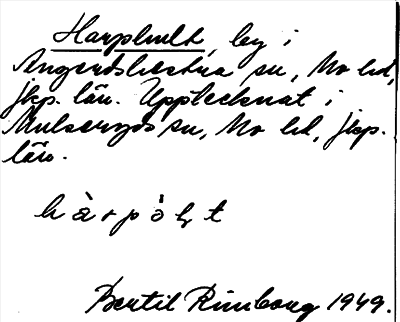 Harphult, by i
Angerdshestra sn, Mo hd,
jkp. län. Upptecknat i
Mulseryds sn, Mo hd, jkp.
län.
Bertil Rimborg 1949.